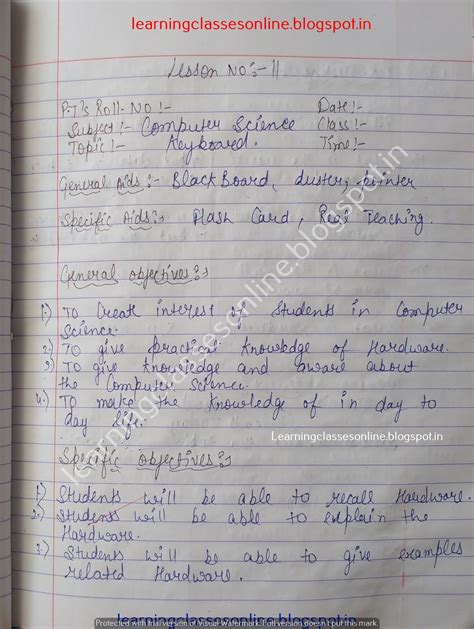 learningclassesonline.blogspot.in
Lesson No:- 11
P.T's Roll-No !- Date!-
Subject !- Computer Science Class!-
Topic !- Keyboard. Time!-
General Aids :- BlackBoard, duster, pointer
Specific Aids : Flash Card, Teaching.
General objectives :-
1) To Create interest of Students in Computer
Science.
2) To give practical Knowledge of Hardware.
3) To give Knowledge and aware about
the Computer Science.
4) To make the Knowledge of in day to
day life.
Learningclassesonline.blogspot.in
Specific objectives :-
1) Students will be able to recall Hardware.
2) Students will be able to explain the
Hardware.
3) Students will be able to give examples
related Hardware.
learningclassesonline.blogspot.in
Protected with trial version of Visual Watermark. Full version doesn't put this mark.
learningclassesonline.blogspot.in